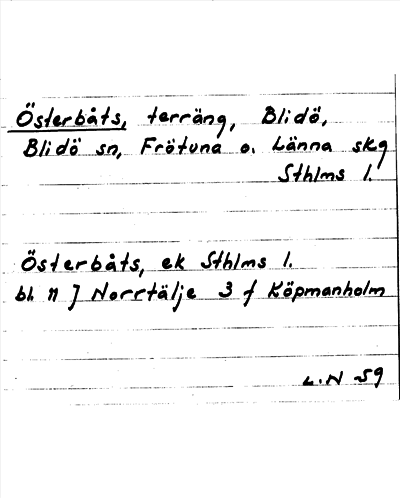 Österbåts, terräng, Blidö,
Blidö sn, Frötuna o. Länna skg
Sthlms l.
Österbåts, ek Sthlms l.
bl. 11 J Norrtälje 3 f Köpmanholm
L.N 59